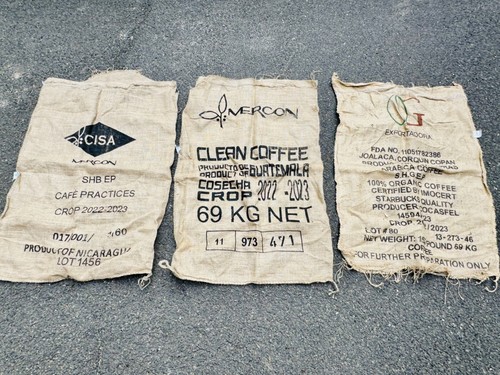 CISA
MERCON
SHB EP
CAFÉ PRACTICES
CROP 2022-2023
017/001/ /60
PRODUCT OF NICARAGU
LOT 1456
MERCON
CLEAN COFFEE
PRODUCTS OF
PRODUCT OF GUATEMALA
COSECHA
CROP 2022-2023
69 KG NET
11 973 471
G
EXPORTADORA
FDA NO. 11051782386
JOALACA, CORQUN COPAN
ARABICA COFFEE
S.H.G EP
100% ORGANIC COFFEE
CERTIFIED BY IMOCERT
STARBUCKS QUALITY
PRODUCER COCASFEL
CROP 2022/2023
LOT # 80 13-273-46
NET WEIGHT: POUND 69 KG
FOR FURTHER PREPARATION ONLY